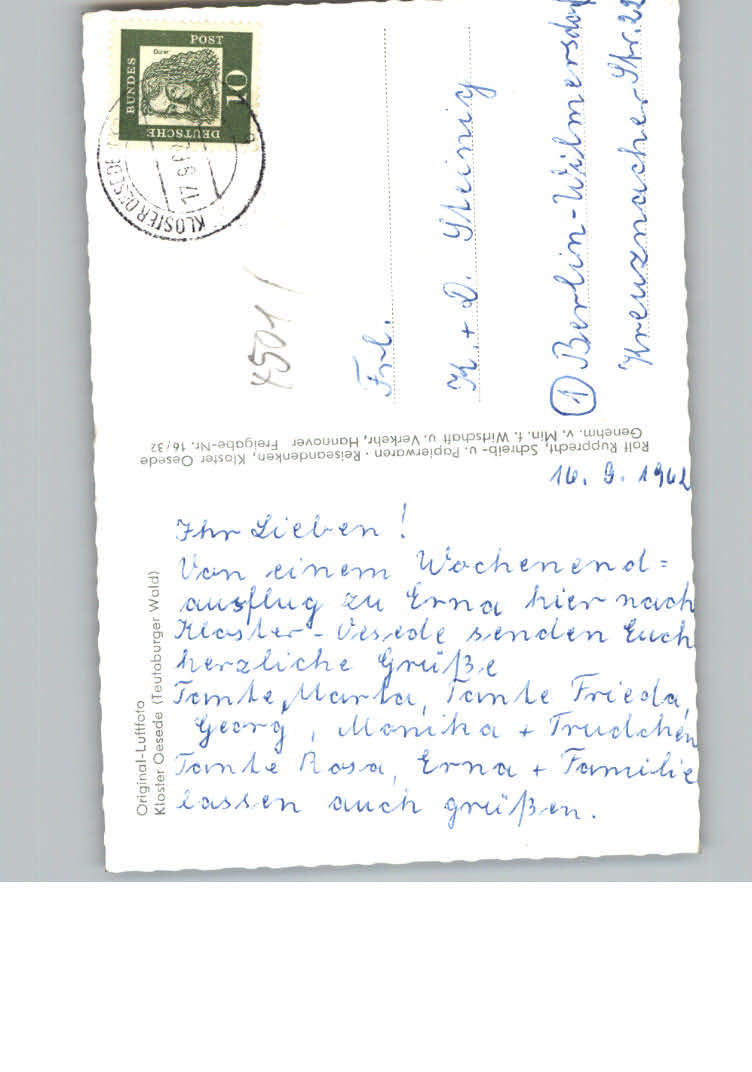 DEUTSCHE
BUNDES
POST
Dürer
10
KLOSTER OESEDE
17.9.62
4501
Frl.
K. + D. Steinig
1 Berlin-Wilmersdorf
Kreuznacher Str. 22
Rolf Rupprecht, Schreib- u. Papierwaren · Reiseandenken, Kloster Oesede
Genehm. v. Min. f. Wirtschaft u. Verkehr, Hannover Freigabe-Nr. 16/32
Original-Luftfoto
Kloster Oesede (Teutoburger Wald)
16. 9. 1962
Ihr Lieben!
Von einem Wochenend=
ausflug zu Erna hier nach
Kloster-Oesede senden Euch
herzliche Grüße
Tante Marta, Tante Frieda,
Georg, Monika + Trudchen
Tante Rosa, Erna + Familie
lassen auch grüßen.